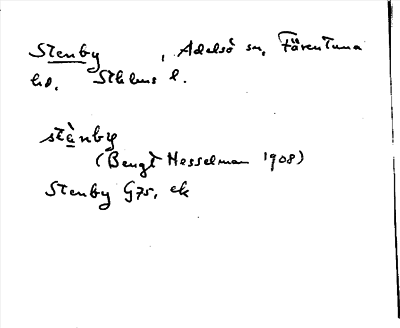 Stenby, Adelsö sn, Färentuna
hd. Sthlms l.
stànby
(Bengt Hesselman 1908)
Stenby G75, ek